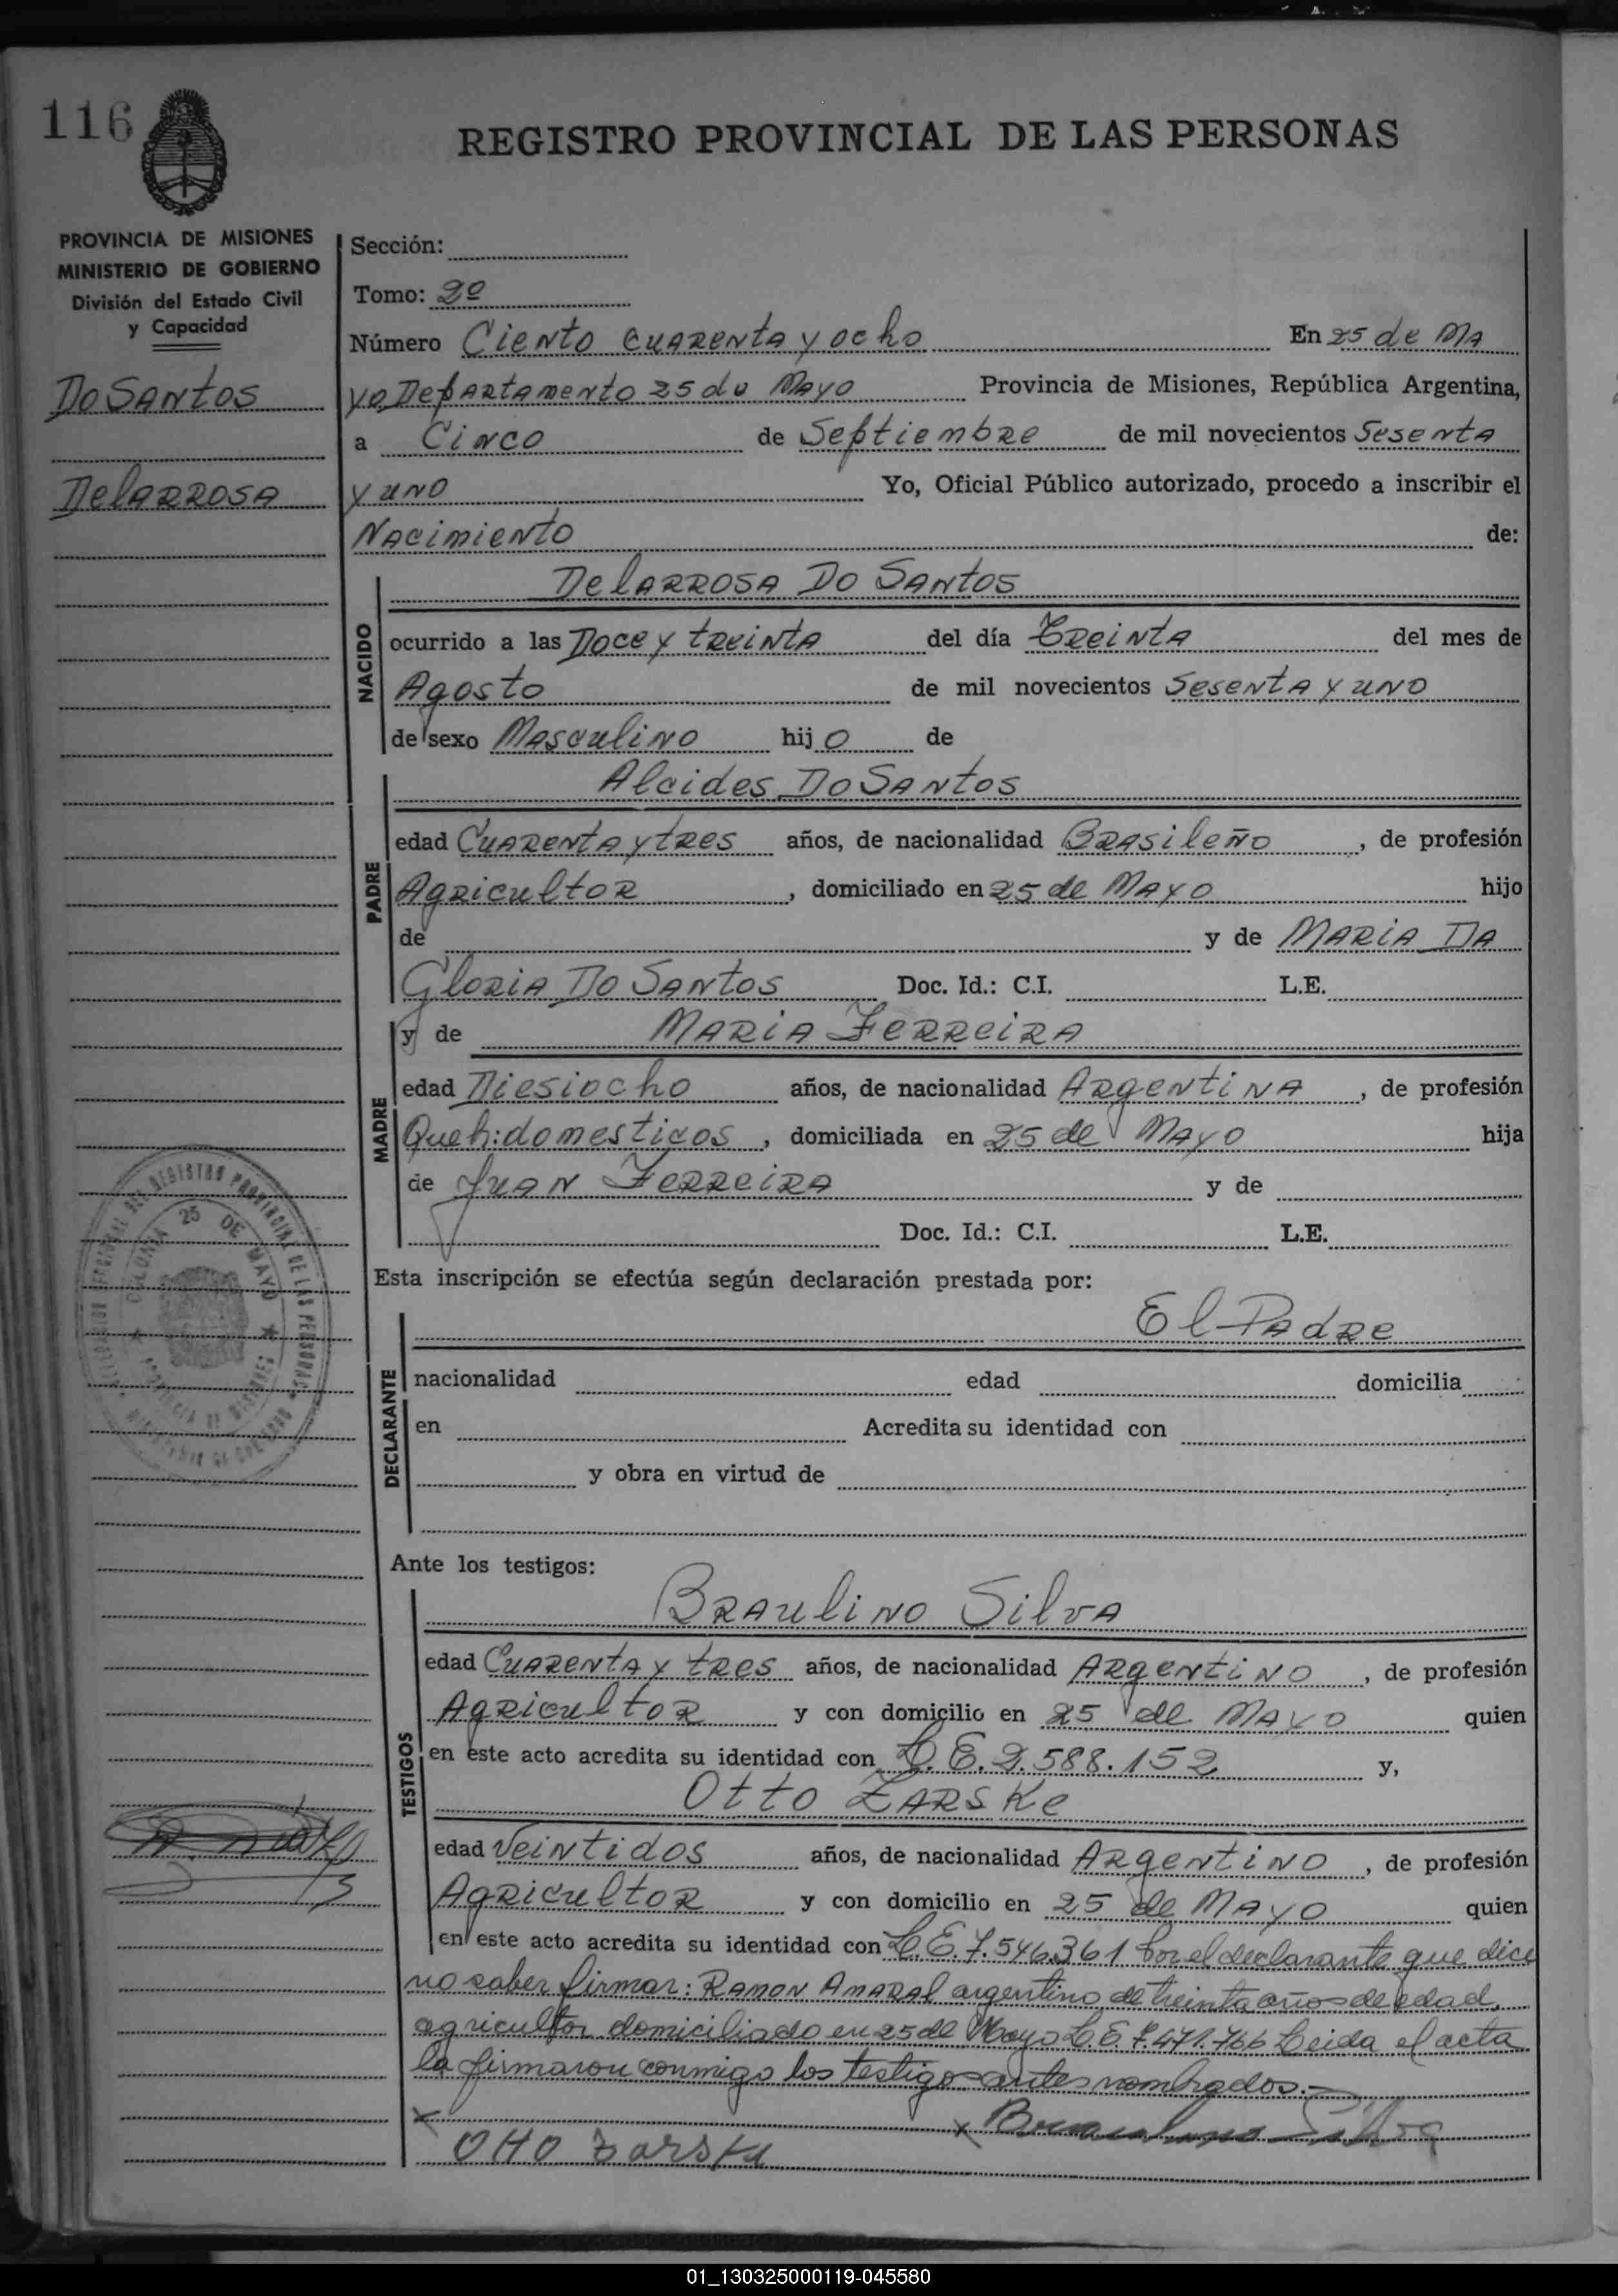 116
REGISTRO PROVINCIAL DE LAS PERSONAS
PROVINCIA DE MISIONES
MINISTERIO DE GOBIERNO
División del Estado Civil
y Capacidad
Do Santos
Delarrosa
Sección:
Tomo: 2º
Número Ciento cuarenta y ocho En 25 de Ma
yo, Departamento 25 de Mayo Provincia de Misiones, República Argentina,
a Cinco de Septiembre de mil novecientos Sesenta
y uno Yo, Oficial Público autorizado, procedo a inscribir el
Nacimiento de:
NACIDO
Delarrosa Do Santos
ocurrido a las Doce y treinta del día Treinta del mes de
Agosto de mil novecientos Sesenta y uno
de sexo Masculino hijo de
PADRE
Alcides Do Santos
edad Cuarenta y tres años, de nacionalidad Brasileño, de profesión
Agricultor, domiciliado en 25 de Mayo hijo
de y de Maria Da
Gloria Do Santos Doc. Id.: C.I. L.E.
MADRE
y de Maria Ferreira
edad Diesiocho años, de nacionalidad Argentina, de profesión
Queh: domesticos, domiciliada en 25 de Mayo hija
de Juan Ferreira y de
Doc. Id.: C.I. L.E.
COLONIA 25 DE MAYO
Esta inscripción se efectúa según declaración prestada por:
DECLARANTE
El Padre
nacionalidad edad domicilia
en Acredita su identidad con
y obra en virtud de
Ante los testigos:
TESTIGOS
Braulino Silva
edad Cuarenta y tres años, de nacionalidad Argentino, de profesión
Agricultor y con domicilio en 25 de Mayo quien
en este acto acredita su identidad con L.E. 2.588.152 y,
Otto Zarske
edad Veintidos años, de nacionalidad Argentino, de profesión
Agricultor y con domicilio en 25 de Mayo quien
en este acto acredita su identidad con L.E. 7.546.361 Por el declarante que dice
no saber firmar: Ramon Amaral argentino de treinta años de edad,
agricultor domiciliado en 25 de Mayo L.E. 7.471.766 Leida el acta
la firmaron conmigo los testigos antes nombrados.-
x x Braulino Silva
Otto Zarske
01_130325000119-045580